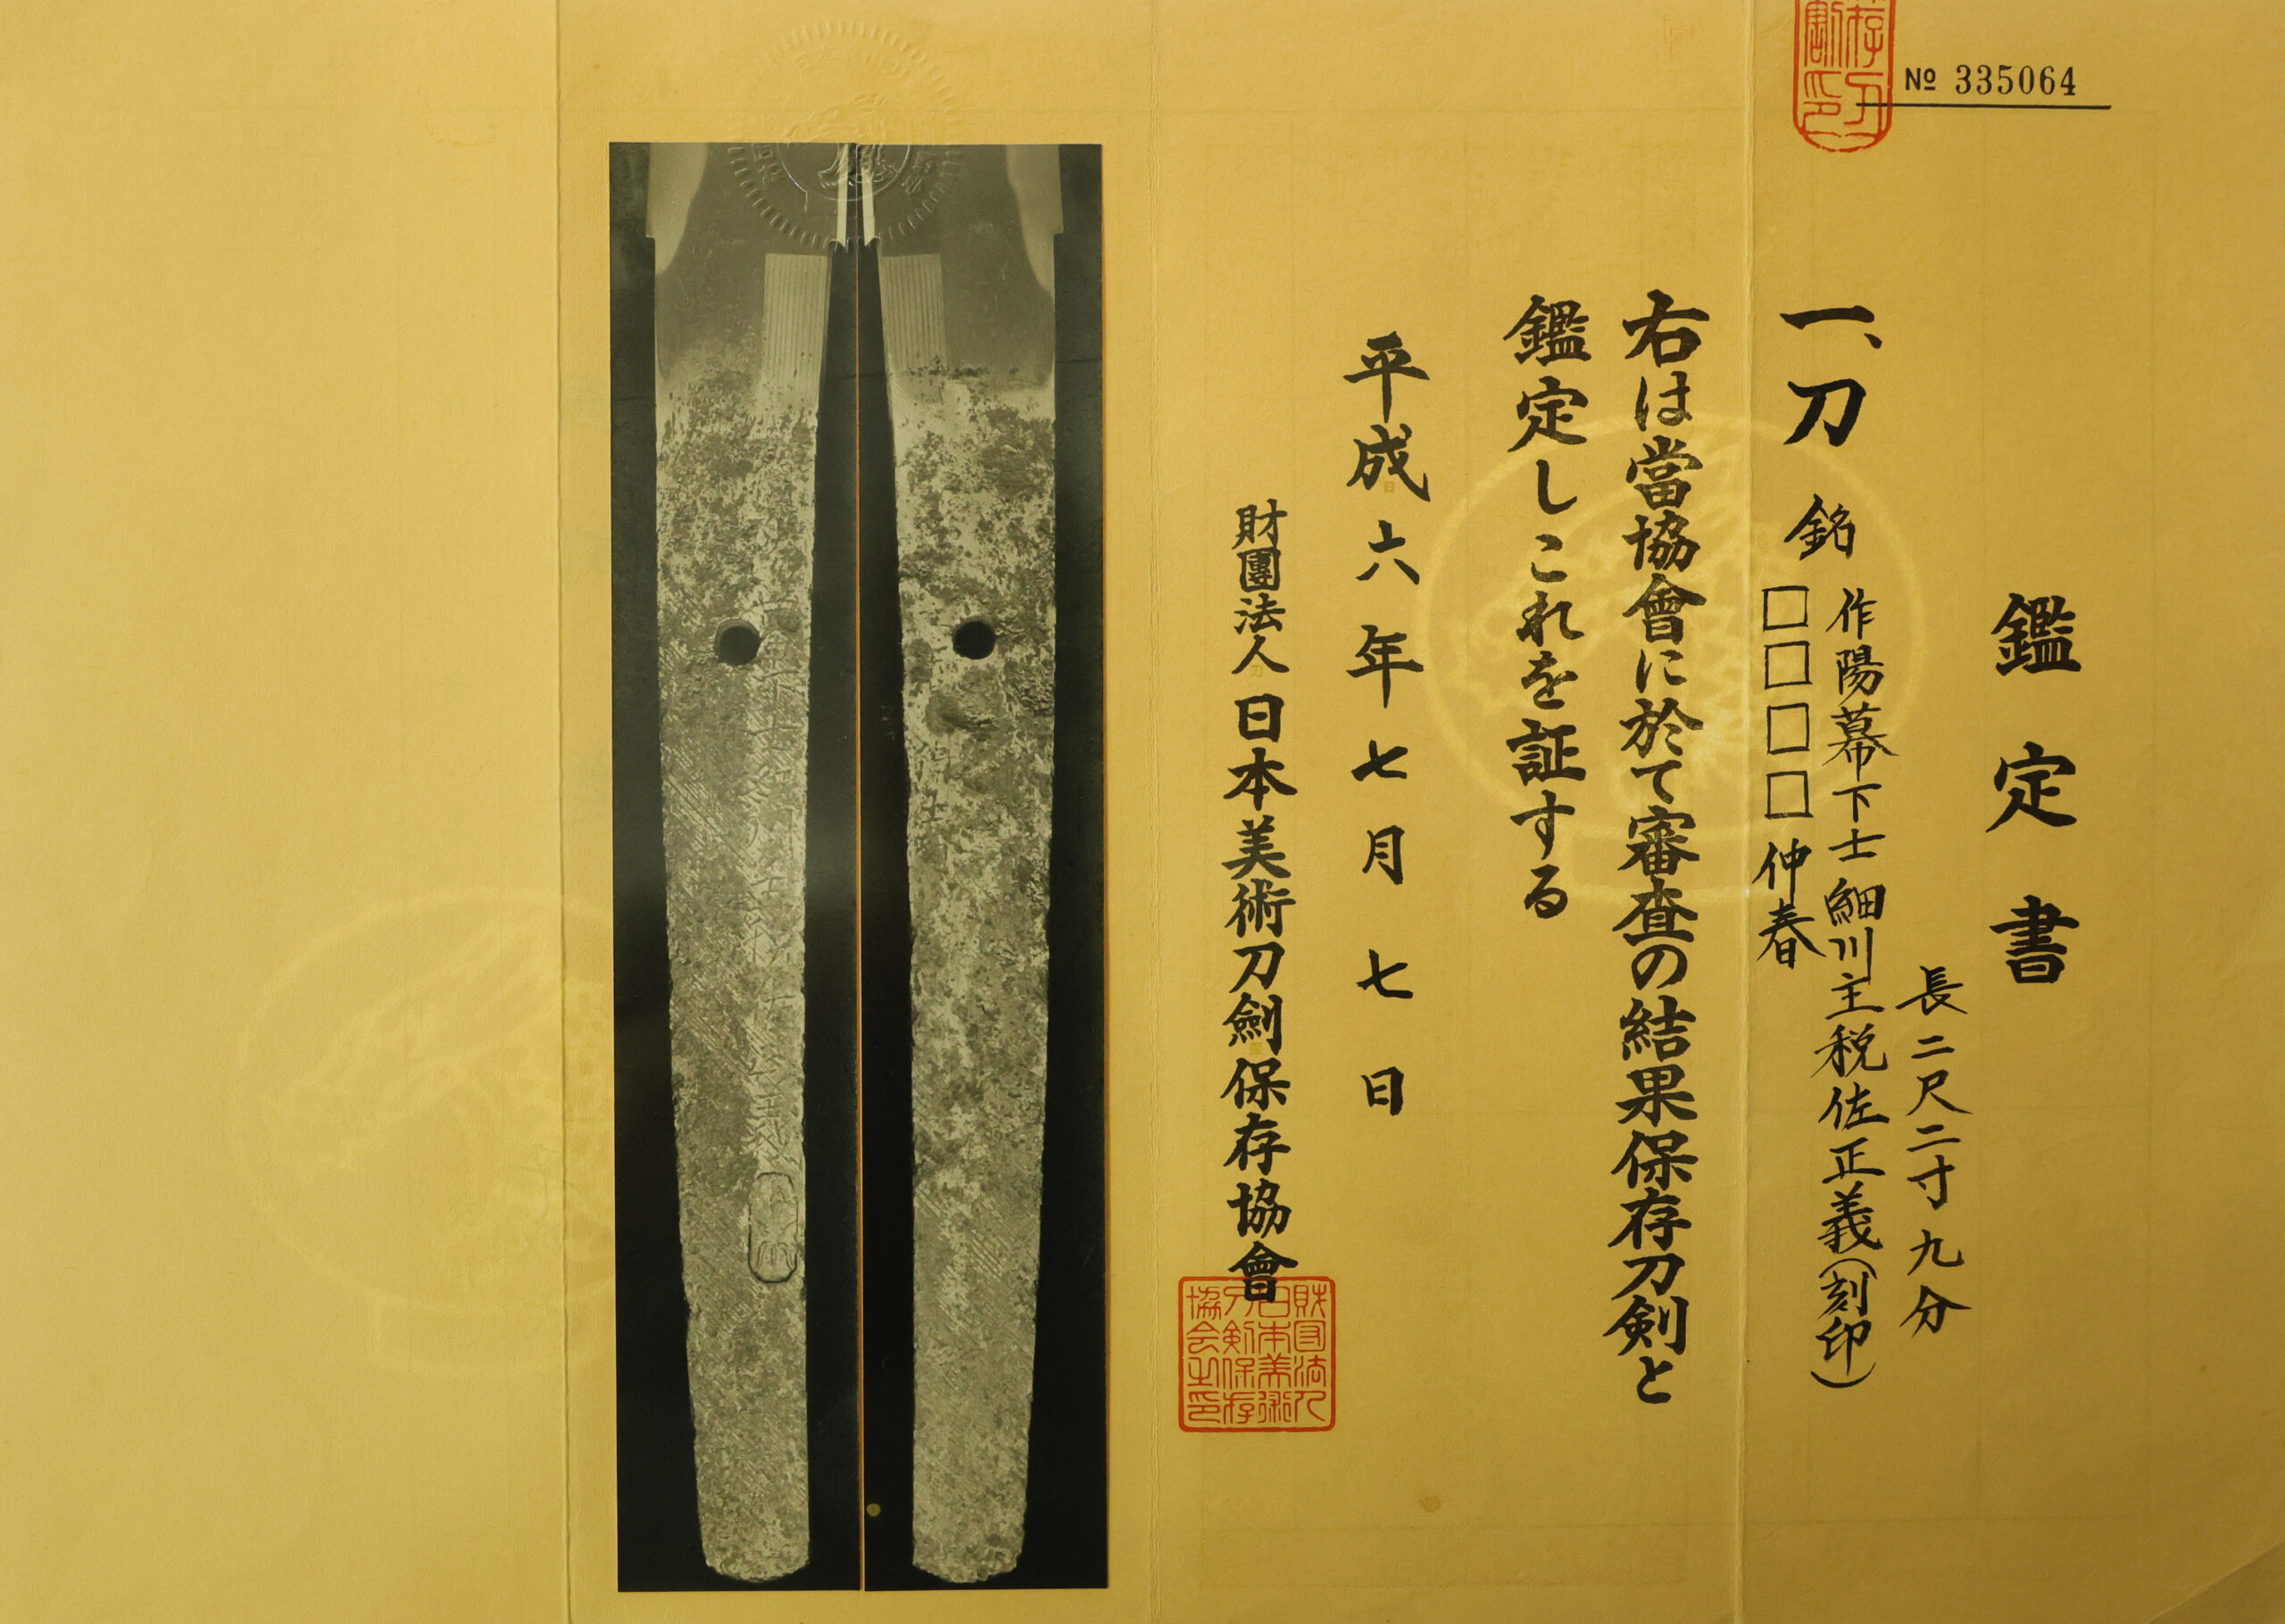 № 335064
鑑定書
長二尺二寸九分
一、刀 銘 作陽幕下士細川主税佐正義(刻印)
□□□□仲春
右は當協會に於て審査の結果保存刀剣と
鑑定しこれを証する
平成六年七月七日
財團法人 日本美術刀劍保存協會
財団法人
日本美術
刀剣保存
協会之印